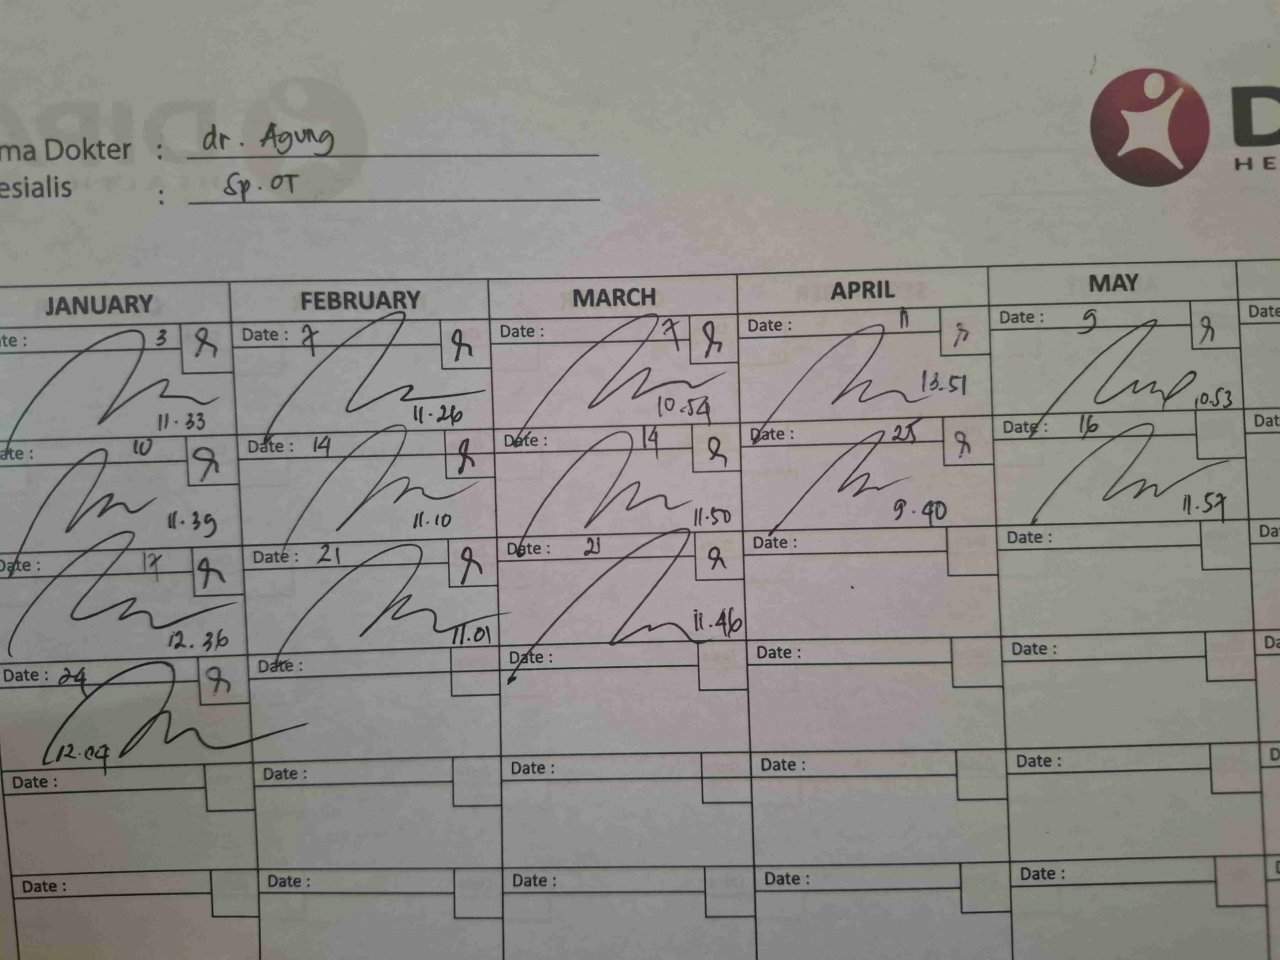 ma Dokter : dr. Agung
esialis : Sp. OT
D
HE
JANUARY FEBRUARY MARCH APRIL MAY
te: 3 Date: 7 Date: 7 Date: 11 Date: 9 Date
11.33 11.26 10.54 13.51 10.53
ate: 10 Date: 14 Date: 14 Date: 25 Date: 16 Dat
11.39 11.10 11.50 9.40 11.57
Date: 17 Date: 21 Date: 21 Date: Date: Da
12.36 11.01 11.46
Date: 24 Date: Date: Date: Date: Da
12.04
Date: Date: Date: Date: Date: D
Date: Date: Date: Date: Date: